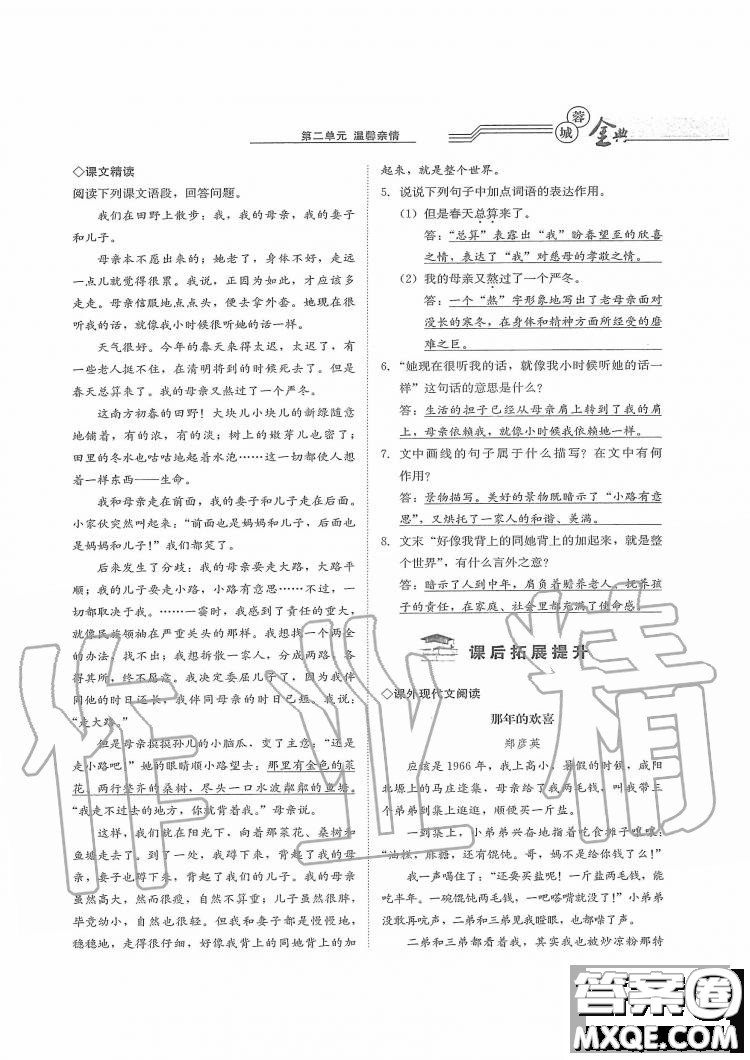 第二单元 温馨亲情
蓉城金典
◇课文精读
阅读下列课文语段，回答问题。
我们在田野上散步：我，我的母亲，我的妻子
和儿子。
母亲本不愿出来的；她老了，身体不好，走远
一点儿就觉得很累。我说，正因为如此，才应该多
走走。母亲信服地点点头，便去拿外套。她现在很
听我的话，就像我小时候很听她的话一样。
天气很好。今年的春天来得太迟，太迟了，有
一些老人挺不住，在清明将到的时候死去了。但是
春天总算来了。我的母亲又熬过了一个严冬。
这南方初春的田野！大块儿小块儿的新绿随意
地铺着，有的浓，有的淡；树上的嫩芽儿也密了；
田里的冬水也咕咕地起着水泡……这一切都使人想
着一样东西——生命。
我和母亲走在前面，我的妻子和儿子走在后面。
小家伙突然叫起来：“前面也是妈妈和儿子，后面也
是妈妈和儿子！”我们都笑了。
后来发生了分歧：我的母亲要走大路，大路平
顺；我的儿子要走小路，小路有意思……不过，一
切都取决于我。……一霎时，我感到了责任的重大，
就像民族领袖在严重关头的那样。我想找一个两全
的办法，找不出；我想拆散一家人，分成两路，各
得其所，终不愿意。我决定委屈儿子了，因为我伴
同他的时日还长，我伴同母亲的时日已短。我说：
“走大路。”
但是母亲摸摸孙儿的小脑瓜，变了主意：“还是
走小路吧！”她的眼睛顺小路望去：那里有金色的菜
花、两行整齐的桑树，尽头一口水波粼粼的鱼塘。
“我走不过去的地方，你就背着我。”母亲说。
这样，我们就在阳光下，向着那菜花、桑树和
鱼塘走去了。到了一处，我蹲下来，背起了我的母
亲，我的妻子也蹲下来，背起了我们的儿子。我的母亲
虽然高大，然而很瘦，自然不算重；儿子虽然很胖，
毕竟幼小，自然也很轻。但我和妻子都是慢慢地，
稳稳地，走得很仔细，好像我背上的同她背上的加
起来，就是整个世界。
5. 说说下列句子中加点词语的表达作用。
（1）但是春天总算来了。
答：“总算”表露出“我”盼春望至的欣喜
之情，表达了“我”对慈母的孝敬之情。
（2）我的母亲又熬过了一个严冬。
答：一个“熬”字形象地写出了老母亲面对
漫长的寒冬，在身体和精神方面所经受的磨
难之巨。
6. “她现在很听我的话，就像我小时候很听她的话一
样”这句话的意思是什么？
答：生活的担子已经从母亲肩上转到了我的肩
上，母亲依赖我，就像小时候我依赖她一样。
7. 文中画线的句子属于什么描写？在文中有何
作用？
答：景物描写。美好的景物既暗示了“小路有意
思”，又烘托了一家人的和谐、美满。
8. 文末“好像我背上的同她背上的加起来，就是整
个世界”，有什么言外之意？
答：暗示了人到中年，肩负着赡养老人、抚养孩
子的责任，在家庭、社会里都充满了使命感。
课后拓展提升
◇课外现代文阅读
那年的欢喜
郑彦英
应该是1966年，我上高小，暑假的时候，咸阳
北塬上的马庄逢集，母亲给了我两毛钱，叫我带三
个弟弟到集上逛逛，顺便买一斤盐。
一到集上，小弟弟兴奋地指着吃食摊子嚷嚷：
“油糕，麻糖，还有馄饨。哥，妈不是给你钱了么！”
我一声喝住了：“还要买盐呢！一斤盐两毛钱，能
吃半年。一碗馄饨两毛钱，一吧嗒嘴就没了！”小弟弟
没敢再吭声，二弟和三弟见我瞪眼，也都噤了声。
二弟和三弟都看着我，其实我也被炒凉粉那特
作业精
答案圈
MXQE.COM